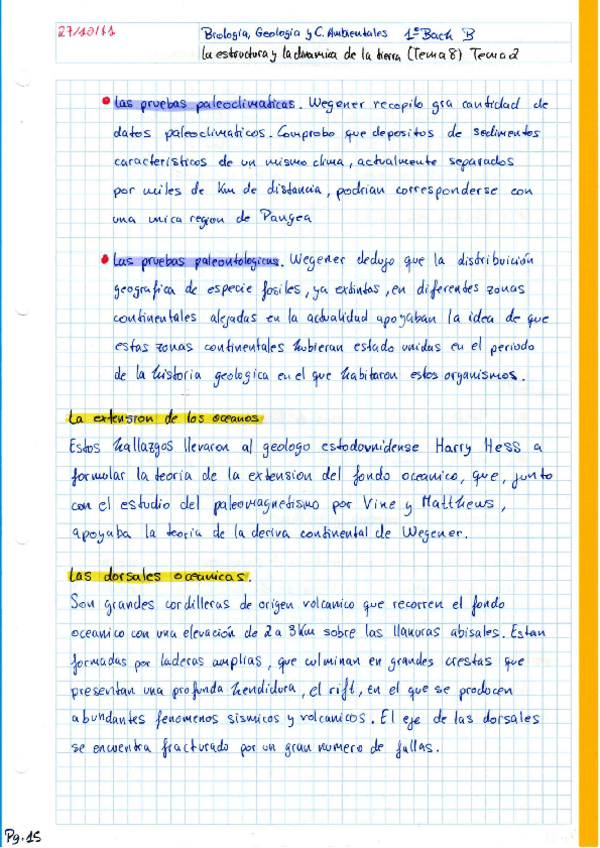 27/10/11
Biologia, Geologia y C. Ambientales 1º Bach B
La estructura y la dinamica de la tierra (Tema 8) Tema 2
Las pruebas paleoclimaticas. Wegener recopilo gra cantidad de
datos paleoclimaticos. Comprobo que depositos de sedimentos
caracteristicos de un mismo clima, actualmente separados
por miles de Km de distancia, podrian corresponderse con
una unica region de Pangea
Las pruebas paleontologicas. Wegener dedujo que la distribuición
geografica de especie fosiles, ya extintas, en diferentes zonas
continentales alejadas en la actualidad apoyaban la idea de que
estas zonas continentales hubieran estado unidas en el periodo
de la historia geologica en el que habitaron estos organismos.
La extension de los oceanos
Estos hallazgos llevaron al geologo estadounidense Harry Hess a
formular la teoria de la extension del fondo oceanico, que, junto
con el estudio del paleomagnetismo por Vine y Matthews,
apoyaba la teoria de la deriva continental de Wegener.
Las dorsales oceanicas.
Son grandes cordilleras de origen volcanico que recorren el fondo
oceanico con una elevación de 2 a 3Km sobre las llanuras abisales. Estan
formadas por laderas amplias, que culminan en grandes crestas que
presentan una profunda hendidura, el rift, en el que se producen
abundantes fenomenos sismicos y volcanicos. El eje de las dorsales
se encuentra fracturado por un gran numero de fallas.
Pg.15